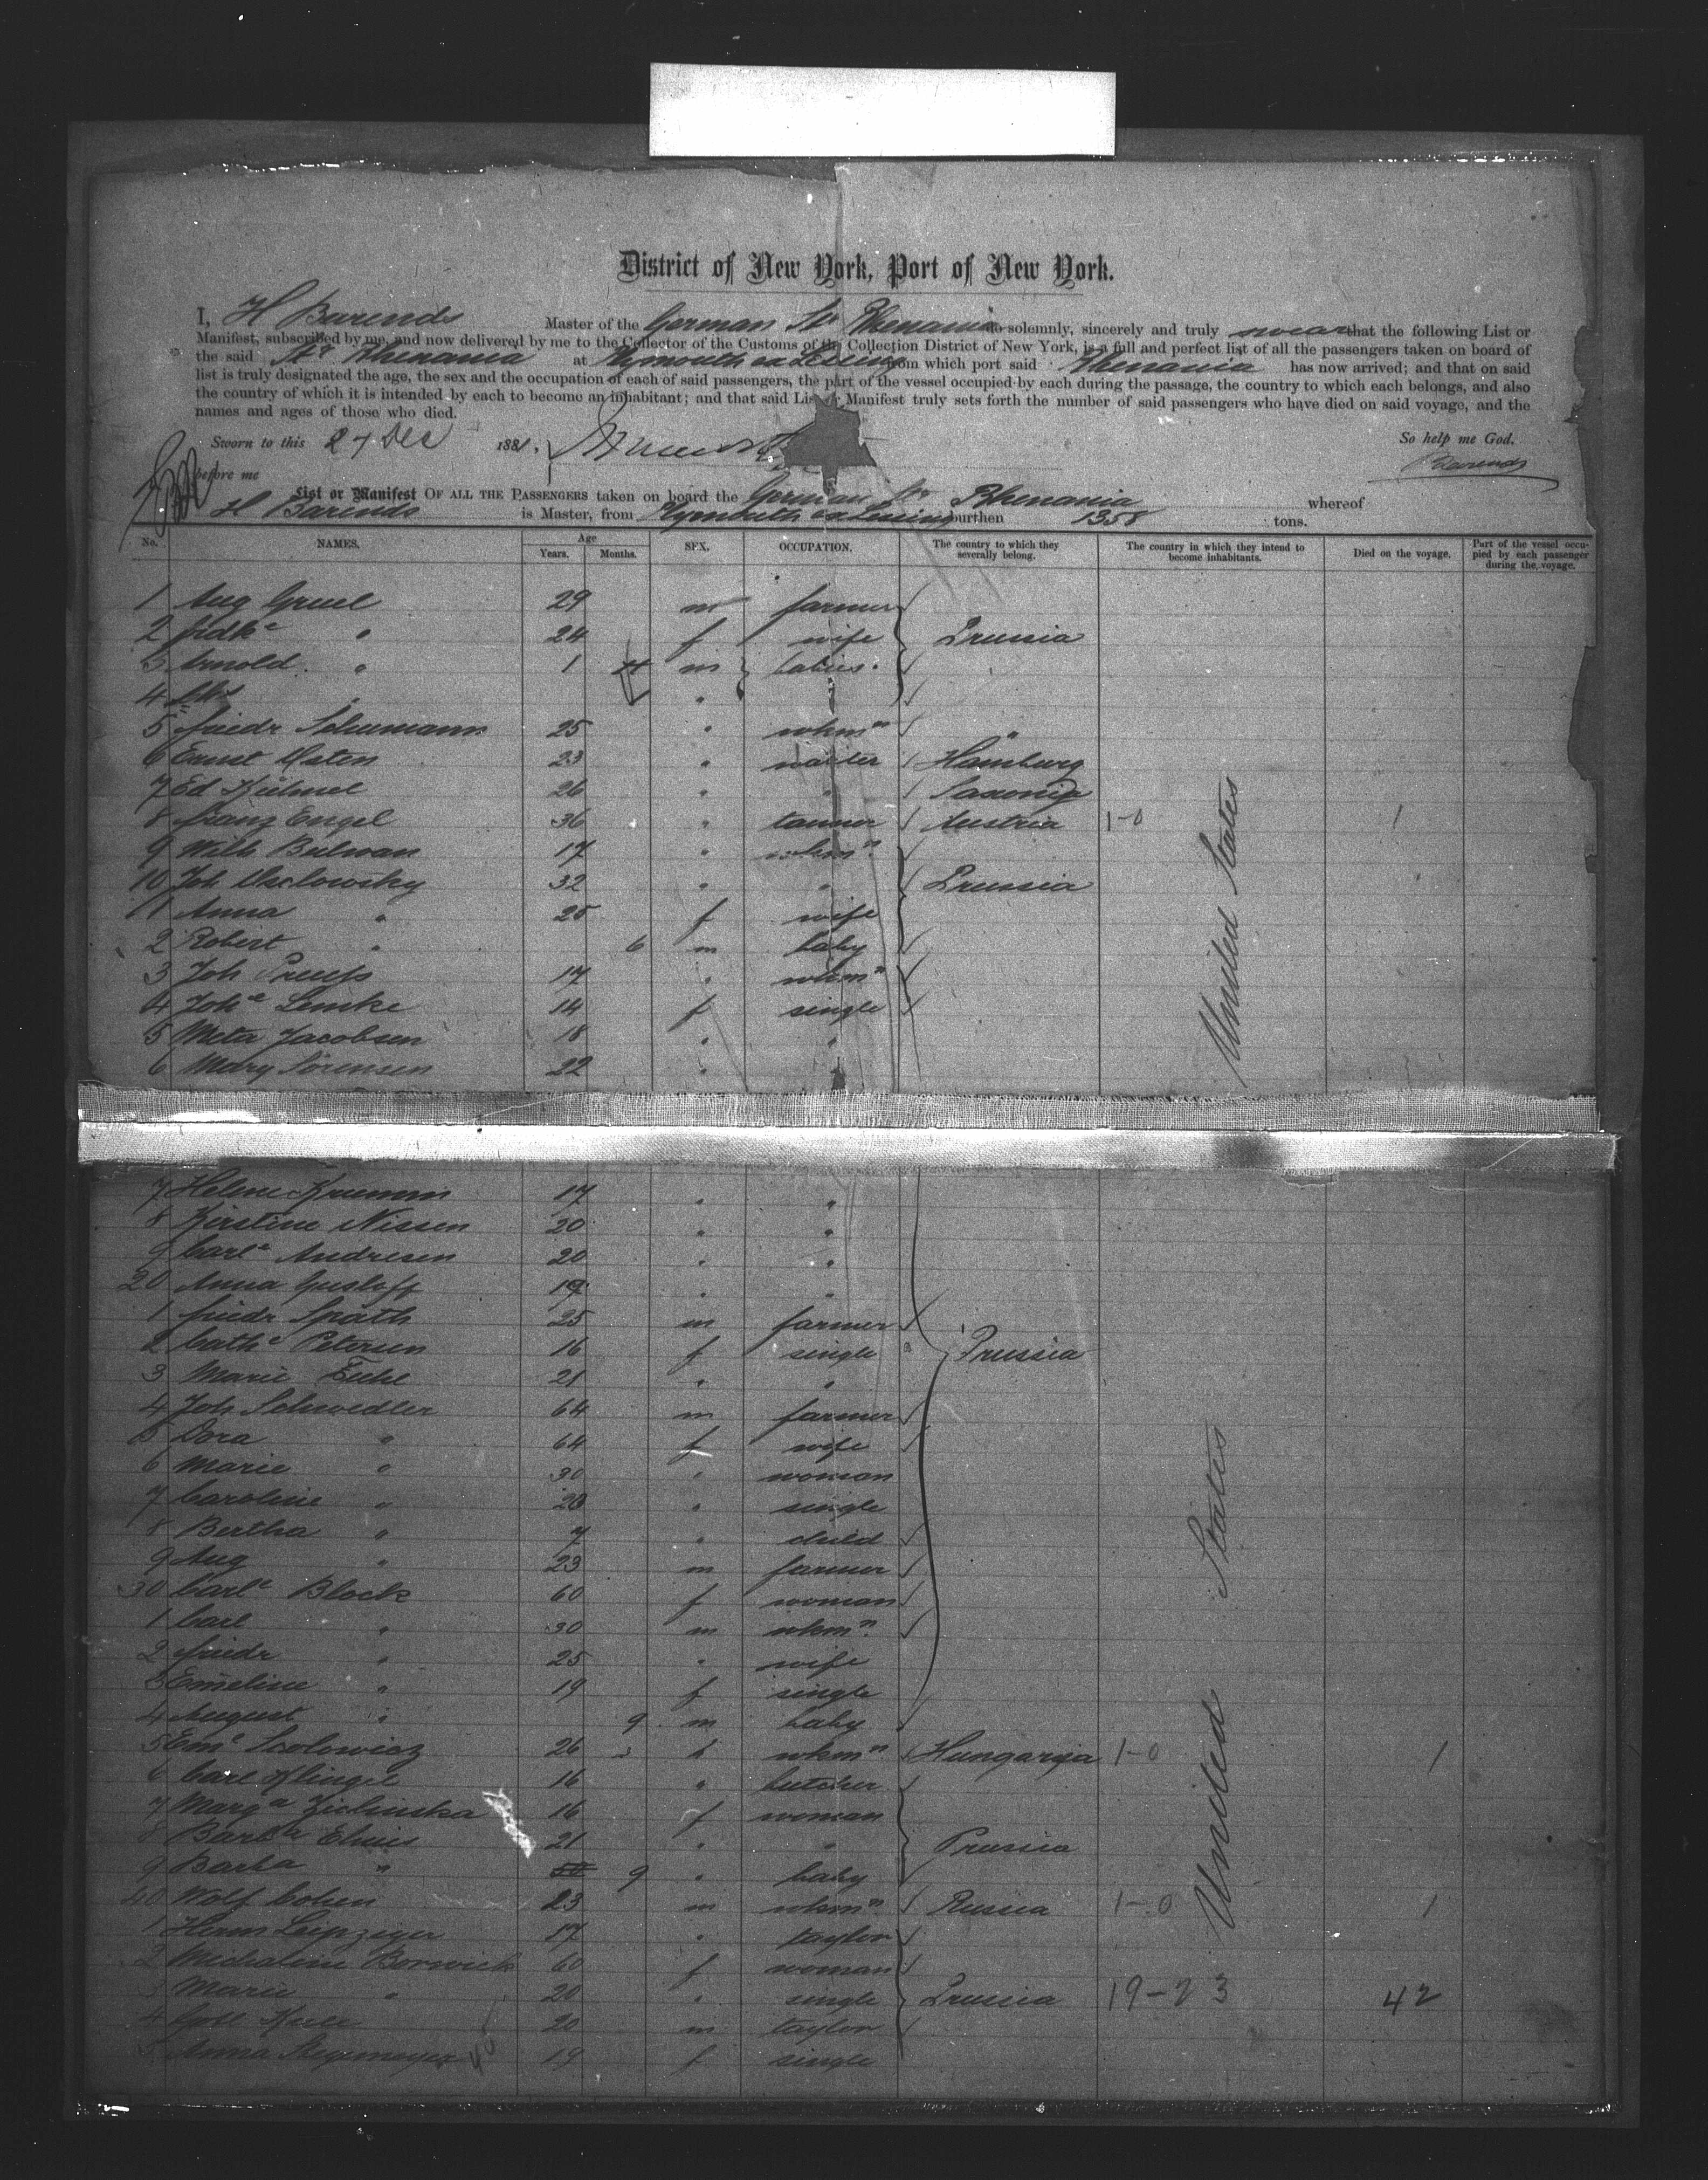 District of New York, Port of New York.
I, H Barends Master of the German Str Rhenania do solemnly, sincerely and truly swear that the following List or
Manifest, subscribed by me, and now delivered by me to the Collector of the Customs of the Collection District of New York, is a full and perfect list of all the passengers taken on board of
the said Str Rhenania at Plymouth ex Lessing from which port said Rhenania has now arrived; and that on said
list is truly designated the age, the sex and the occupation of each of said passengers, the part of the vessel occupied by each during the passage, the country to which each belongs, and also
the country of which it is intended by each to become an inhabitant; and that said List or Manifest truly sets forth the number of said passengers who have died on said voyage, and the
names and ages of those who died.
Sworn to this 27 Dec 1881. So help me God.
before me Barends
List or Manifest OF ALL THE PASSENGERS taken on board the German Str Rhenania whereof
H Barends is Master, from Plymouth ex Lessing burthen 1358 tons.
No. NAMES. Age Years. Months. SEX. OCCUPATION. The country to which they severally belong. The country in which they intend to become inhabitants. Died on the voyage. Part of the vessel occupied by each passenger during the voyage.
1 Aug Gruel 29 m farmer
2 Fridke " 24 f wife Prussia
3 Arnold " 1 m babies
4 "
5 Friedr Schumann 25 " wkmn "
6 Ernst Osten 23 " waiter Hamburg
7 Ed Kühnel 26 " " Saxonia
8 Franz Engel 36 " tanner Austria 1-0 1
9 Wilh 17 " wkmn
10 Joh 32 " " Prussia
11 Anna " 25 f wife
2 Robert " 6 m baby
3 Joh Preuss 17 " wkmn
4 Joha Lemke 14 f single
5 Meta Jacobsen 18 " "
6 Mary Sörensen 22 "
United States
7 Helene Krumm 17 " "
8 Kirstine Nissen 20 " "
9 Carla Andresen 20 " "
20 Anna Gusloff 19 " "
1 Friedr Späth 25 m farmer
2 Cathe Petersen 16 f single Prussia
3 Marie 21 " "
4 Joh Schwedler 64 m farmer
5 Dora " 64 f wife
6 Marie " 30 " woman
7 Caroline " 20 " single
8 Bertha " 7 " child
9 Aug " 23 m farmer
30 Carle Block 60 f woman
1 Carl " 30 m wkmn
2 Friedr " 25 " wife
3 Emeline " 19 f single
4 August " 9 m baby
5 Eml Scolowicz 26 wkmn Hungaria 1-0 1
6 Carl Klingel 16 " butcher
7 Marga Zielinska 16 f woman
8 Barba 21 " " Prussia
9 Barba " 9 " baby
40 Wolf Cohen 23 m wkmn Russia 1-0 1
1 Herm Leipziger 17 " taylor
2 Michaline Borwick 60 f woman
3 Marie " 20 " single Prussia 19-23 42
4 Gotl 20 m taylor
5 Anna Stegemeyer 19 f single
United States